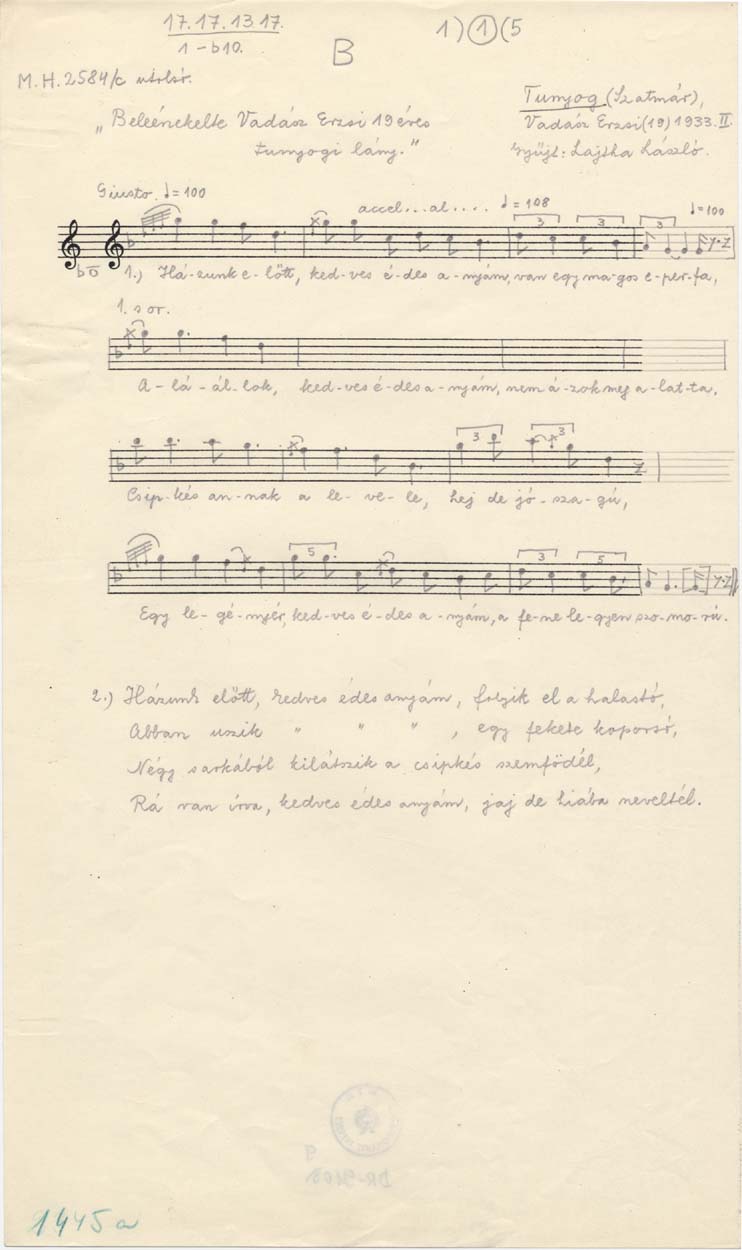 17.17.13.17.
1-b10.
B
1) 1 (5
M.H. 2584/c utolsó.
Tunyog (Szatmár),
"Beleénekelte Vadász Erzsi 19 éves
Vadász Erzsi (19) 1933. II.
tunyogi lány."
Gyűjt: Lajtha László.
Giusto. ♩=100
accel...al....
♩=108
♩=100
3 3 3
1.) Há-zunk e-lőtt, ked-ves é-des a-nyám, van egy ma-gos e-per-fa,
1. sor.
A-lá-ál-lok, ked-ves é-des a-nyám, nem á-zok meg a-lat-ta,
3 3
Csip-kés an-nak a le-ve-le, hej de jó-sza-gú,
5 3 5
Egy le-gé-nyér, ked-ves é-des a-nyám, a fe-ne le-gyen szo-mo-rú.
2.) Házunk előtt, kedves édes anyám, folyik el a halastó,
Abban uszik " " " , egy fekete koporsó,
Négy sarkából kilátszik a csipkés szemfödél,
Rá van írva, kedves édes anyám, jaj de hiába neveltél.
1445a